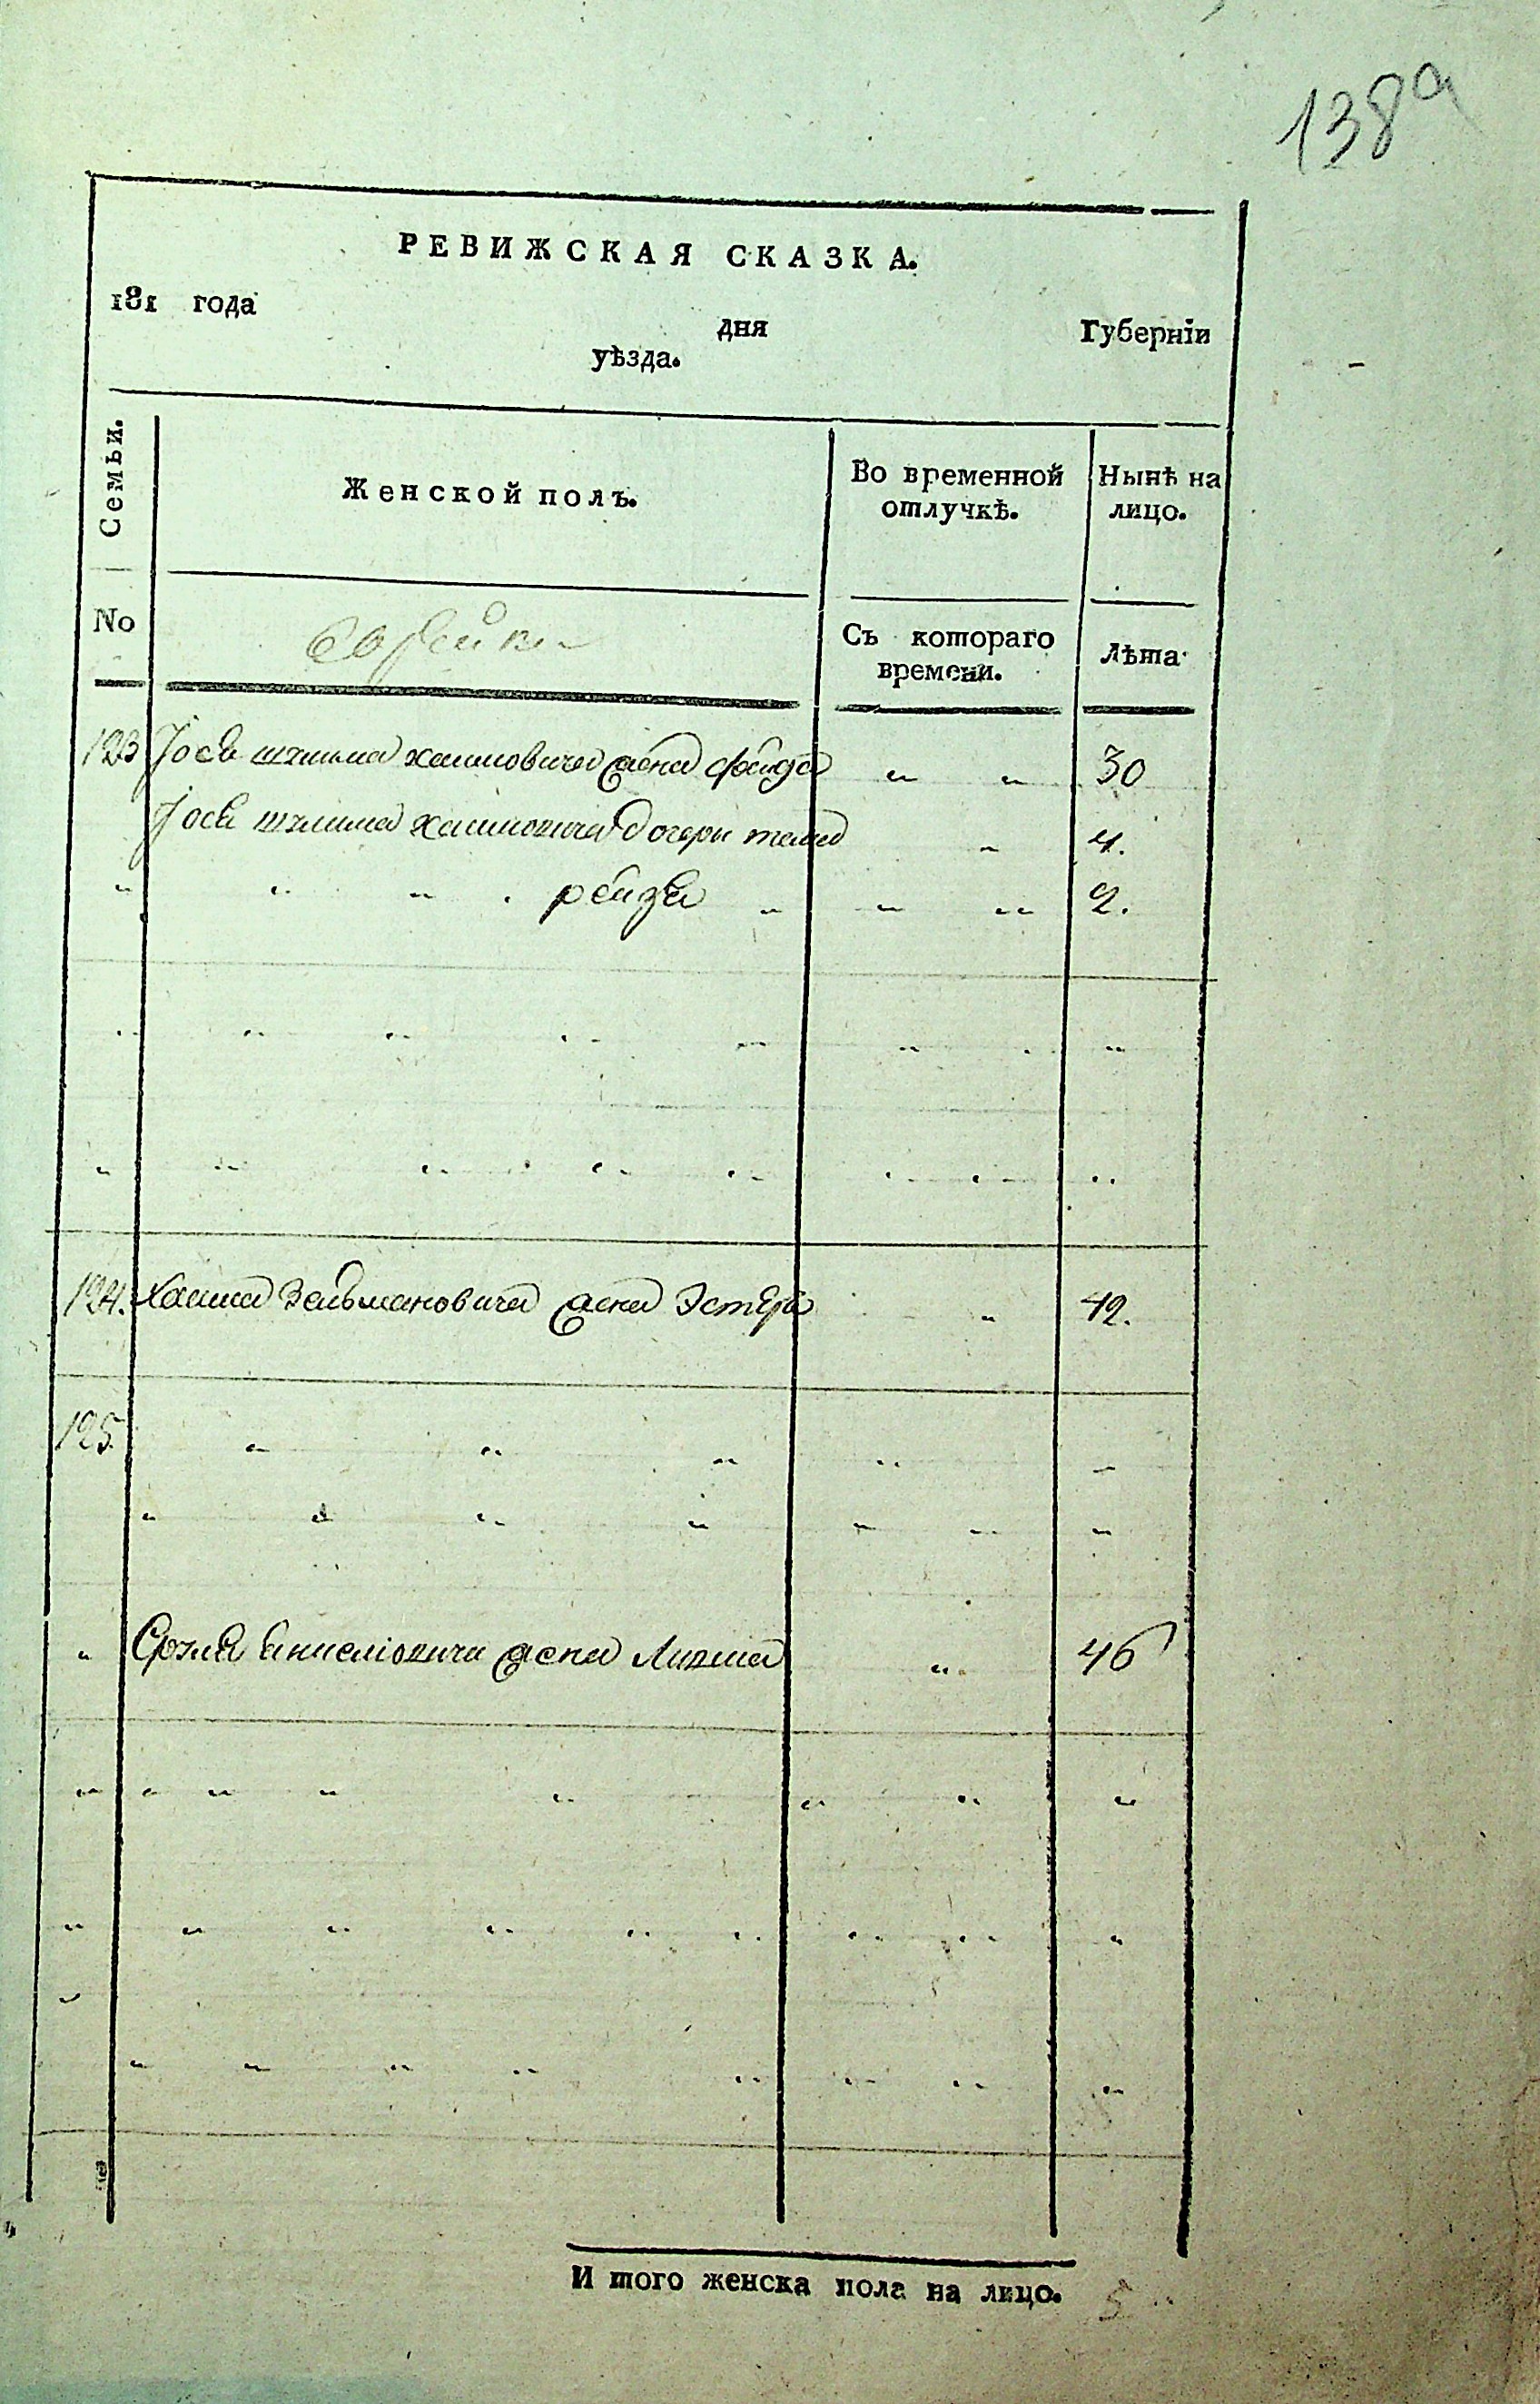 138а
РЕВИЖСКАЯ СКАЗКА.
181 года дня Губерніи
уѣзда.
Семьи.
Женской полъ.
Во временной отлучкѣ.
Нынѣ на лицо.
No
Еврейки
Съ котораго времени.
Лѣта
123 Іося шлиома хаимовича жена фейга " " 30
Іося шлиома хаимовича дочери " 4.
" " " рейзя " " " 2.
124. Хаима Зельмановича жена Эстеръ " 42.
125.
" жена Ливша " 46
И того женска пола на лицо. 5